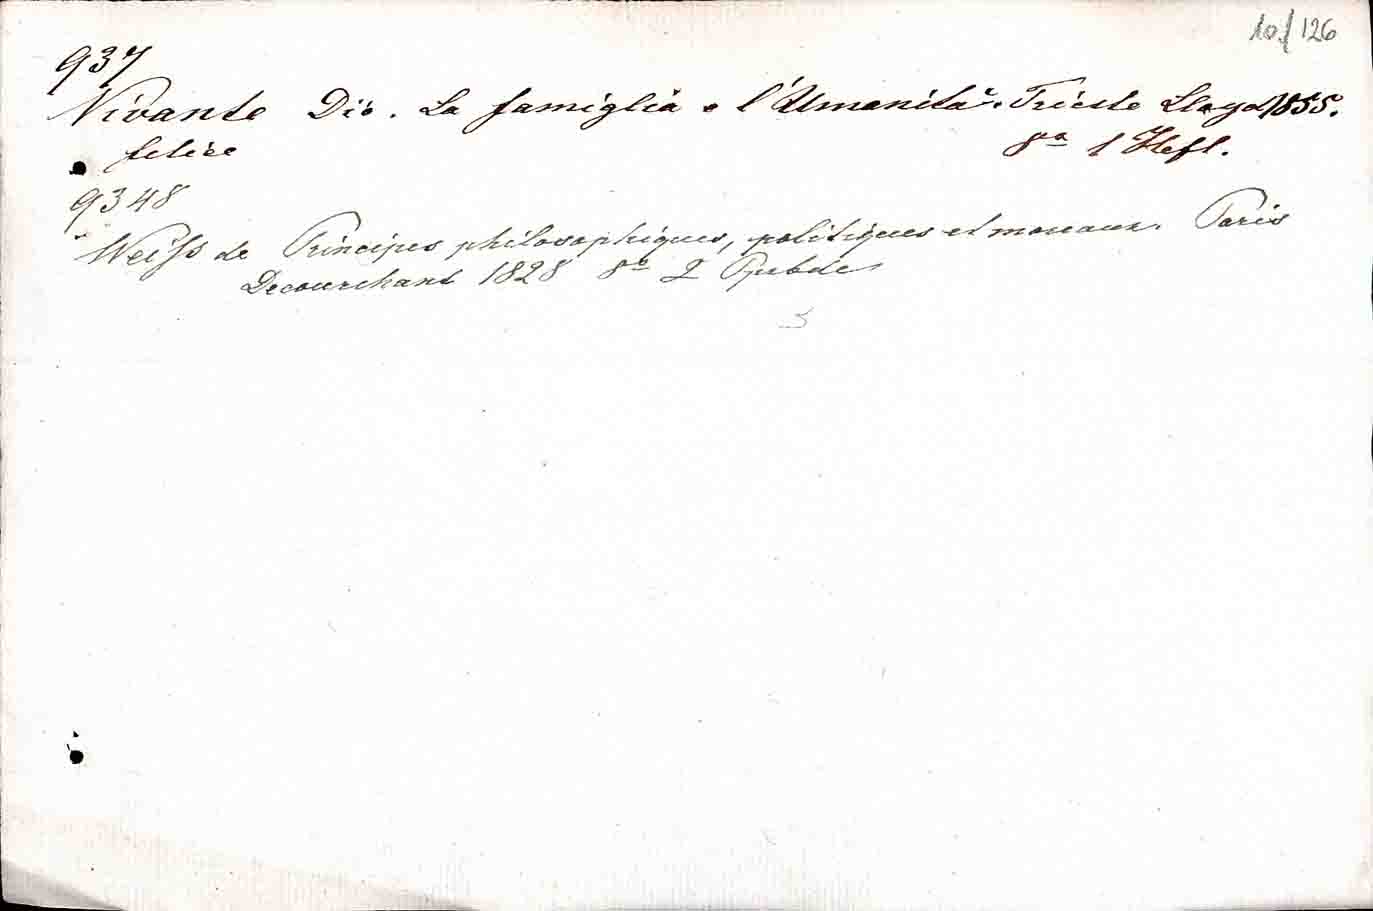 10/126
937
Vivante Dio. La famiglia e l'Umanità. Trieste Lloyd 1855.
felice 8va 1 Heft.
9348
Weiss de Principes philosophiques, politiques et moraux. Paris
Decourchant 1828 8° 2 Ppbde